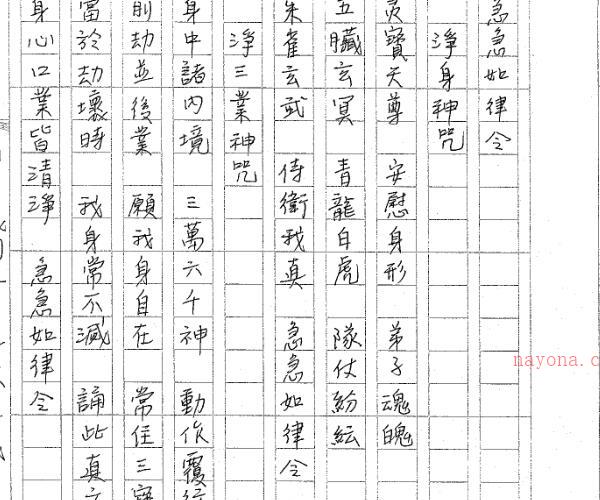 急急如律令
淨身神咒
靈寶天尊 安慰身形 弟子魂魄
五臟玄冥 青龍白虎 隊仗紛紜
朱雀玄武 侍衛我真 急急如律令
淨三業神咒
身中諸內境 三萬六千神 動作履行
前劫並後業 願我身自在 常住三寶
當於劫壞時 我身常不滅 誦此真文
身心口業皆清淨 急急如律令
nayona.c